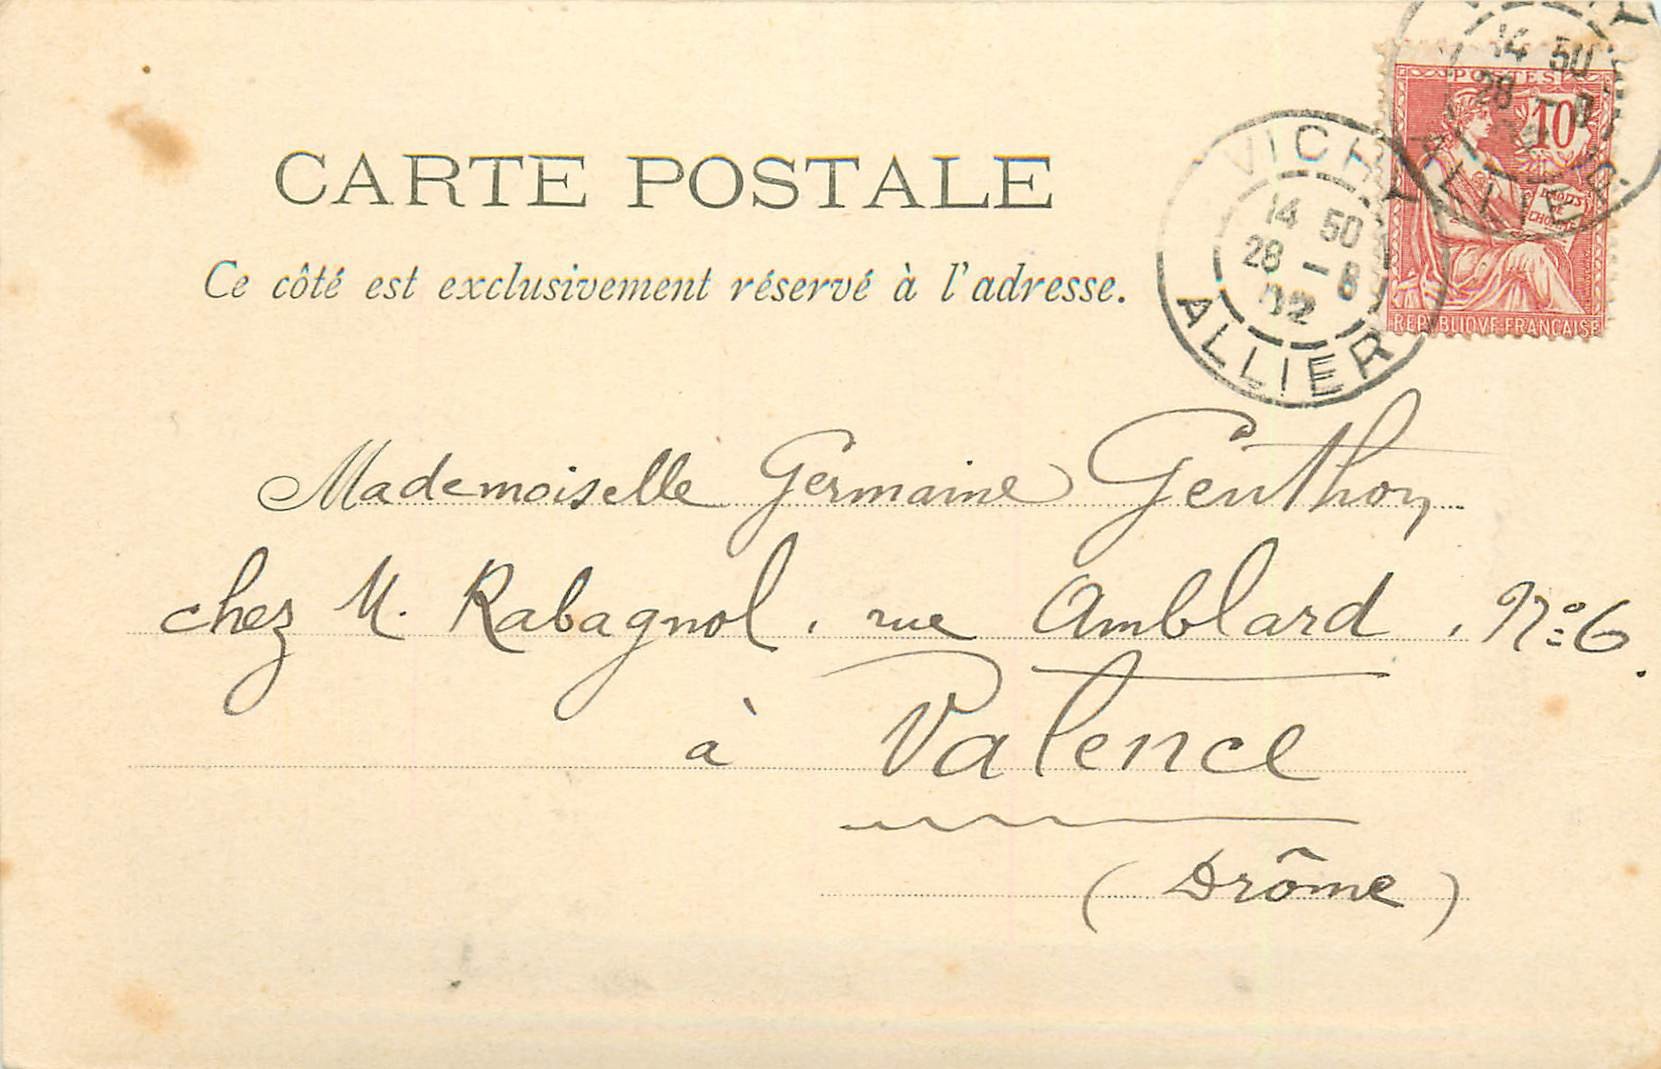 CARTE POSTALE
Ce côté est exclusivement réservé à l'adresse.
POSTES
10
DROITS
DE
L'HOMME
REPUBLIQUE FRANÇAISE
VICHY
14 50
28 - 8
02
ALLIER
14 50
28 - 8
ALLIER
Mademoiselle Germaine Genthon
chez M. Rabagnol, rue Amblard, No 6.
à Valence
(Drôme)